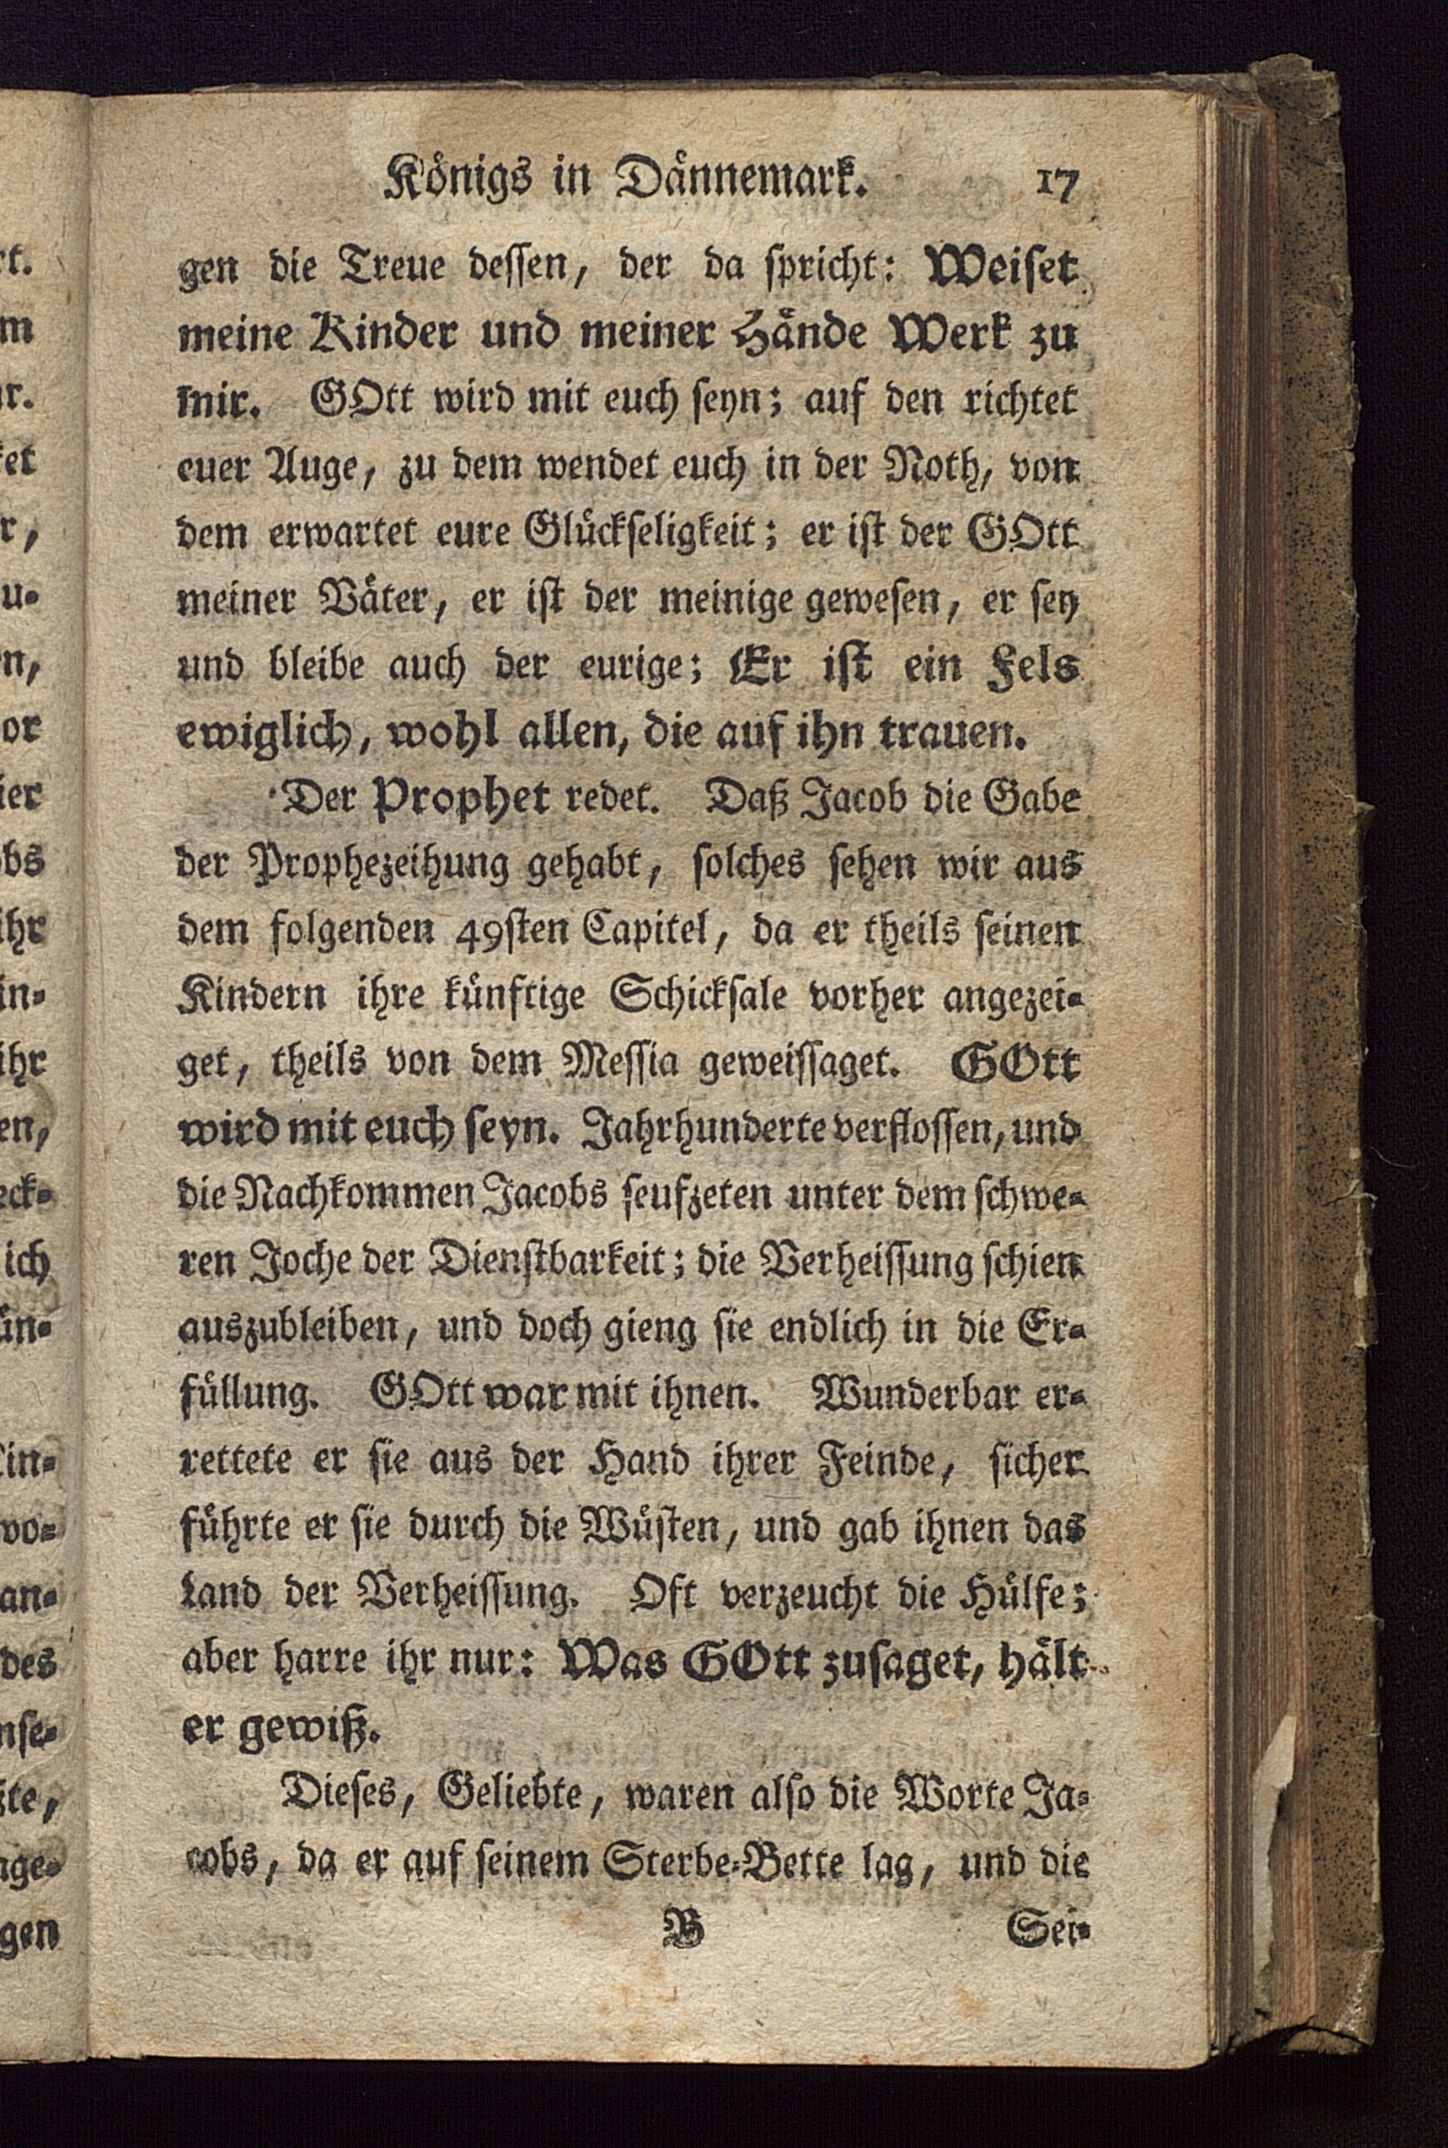 Königs in Dännemark. 17
gen die Treue dessen, der da spricht: Weiset
meine Kinder und meiner Hände Werk zu
mir. GOtt wird mit euch seyn; auf den richtet
euer Auge, zu dem wendet euch in der Noth, von
dem erwartet eure Glückseligkeit; er ist der GOtt
meiner Väter, er ist der meinige gewesen, er sey
und bleibe auch der eurige; Er ist ein Fels
ewiglich, wohl allen, die auf ihn trauen.
Der Prophet redet. Daß Jacob die Gabe
der Prophezeihung gehabt, solches sehen wir aus
dem folgenden 49sten Capitel, da er theils seinen
Kindern ihre künftige Schicksale vorher angezei-
get, theils von dem Messia geweissaget. GOtt
wird mit euch seyn. Jahrhunderte verflossen, und
die Nachkommen Jacobs seufzeten unter dem schwe-
ren Joche der Dienstbarkeit; die Verheissung schien
auszubleiben, und doch gieng sie endlich in die Er-
füllung. GOtt war mit ihnen. Wunderbar er-
rettete er sie aus der Hand ihrer Feinde, sicher
führte er sie durch die Wüsten, und gab ihnen das
Land der Verheissung. Oft verzeucht die Hülfe;
aber harre ihr nur: Was GOtt zusaget, hält
er gewiß.
Dieses, Geliebte, waren also die Worte Ja-
cobs, da er auf seinem Sterbe-Bette lag, und die
B Sei-